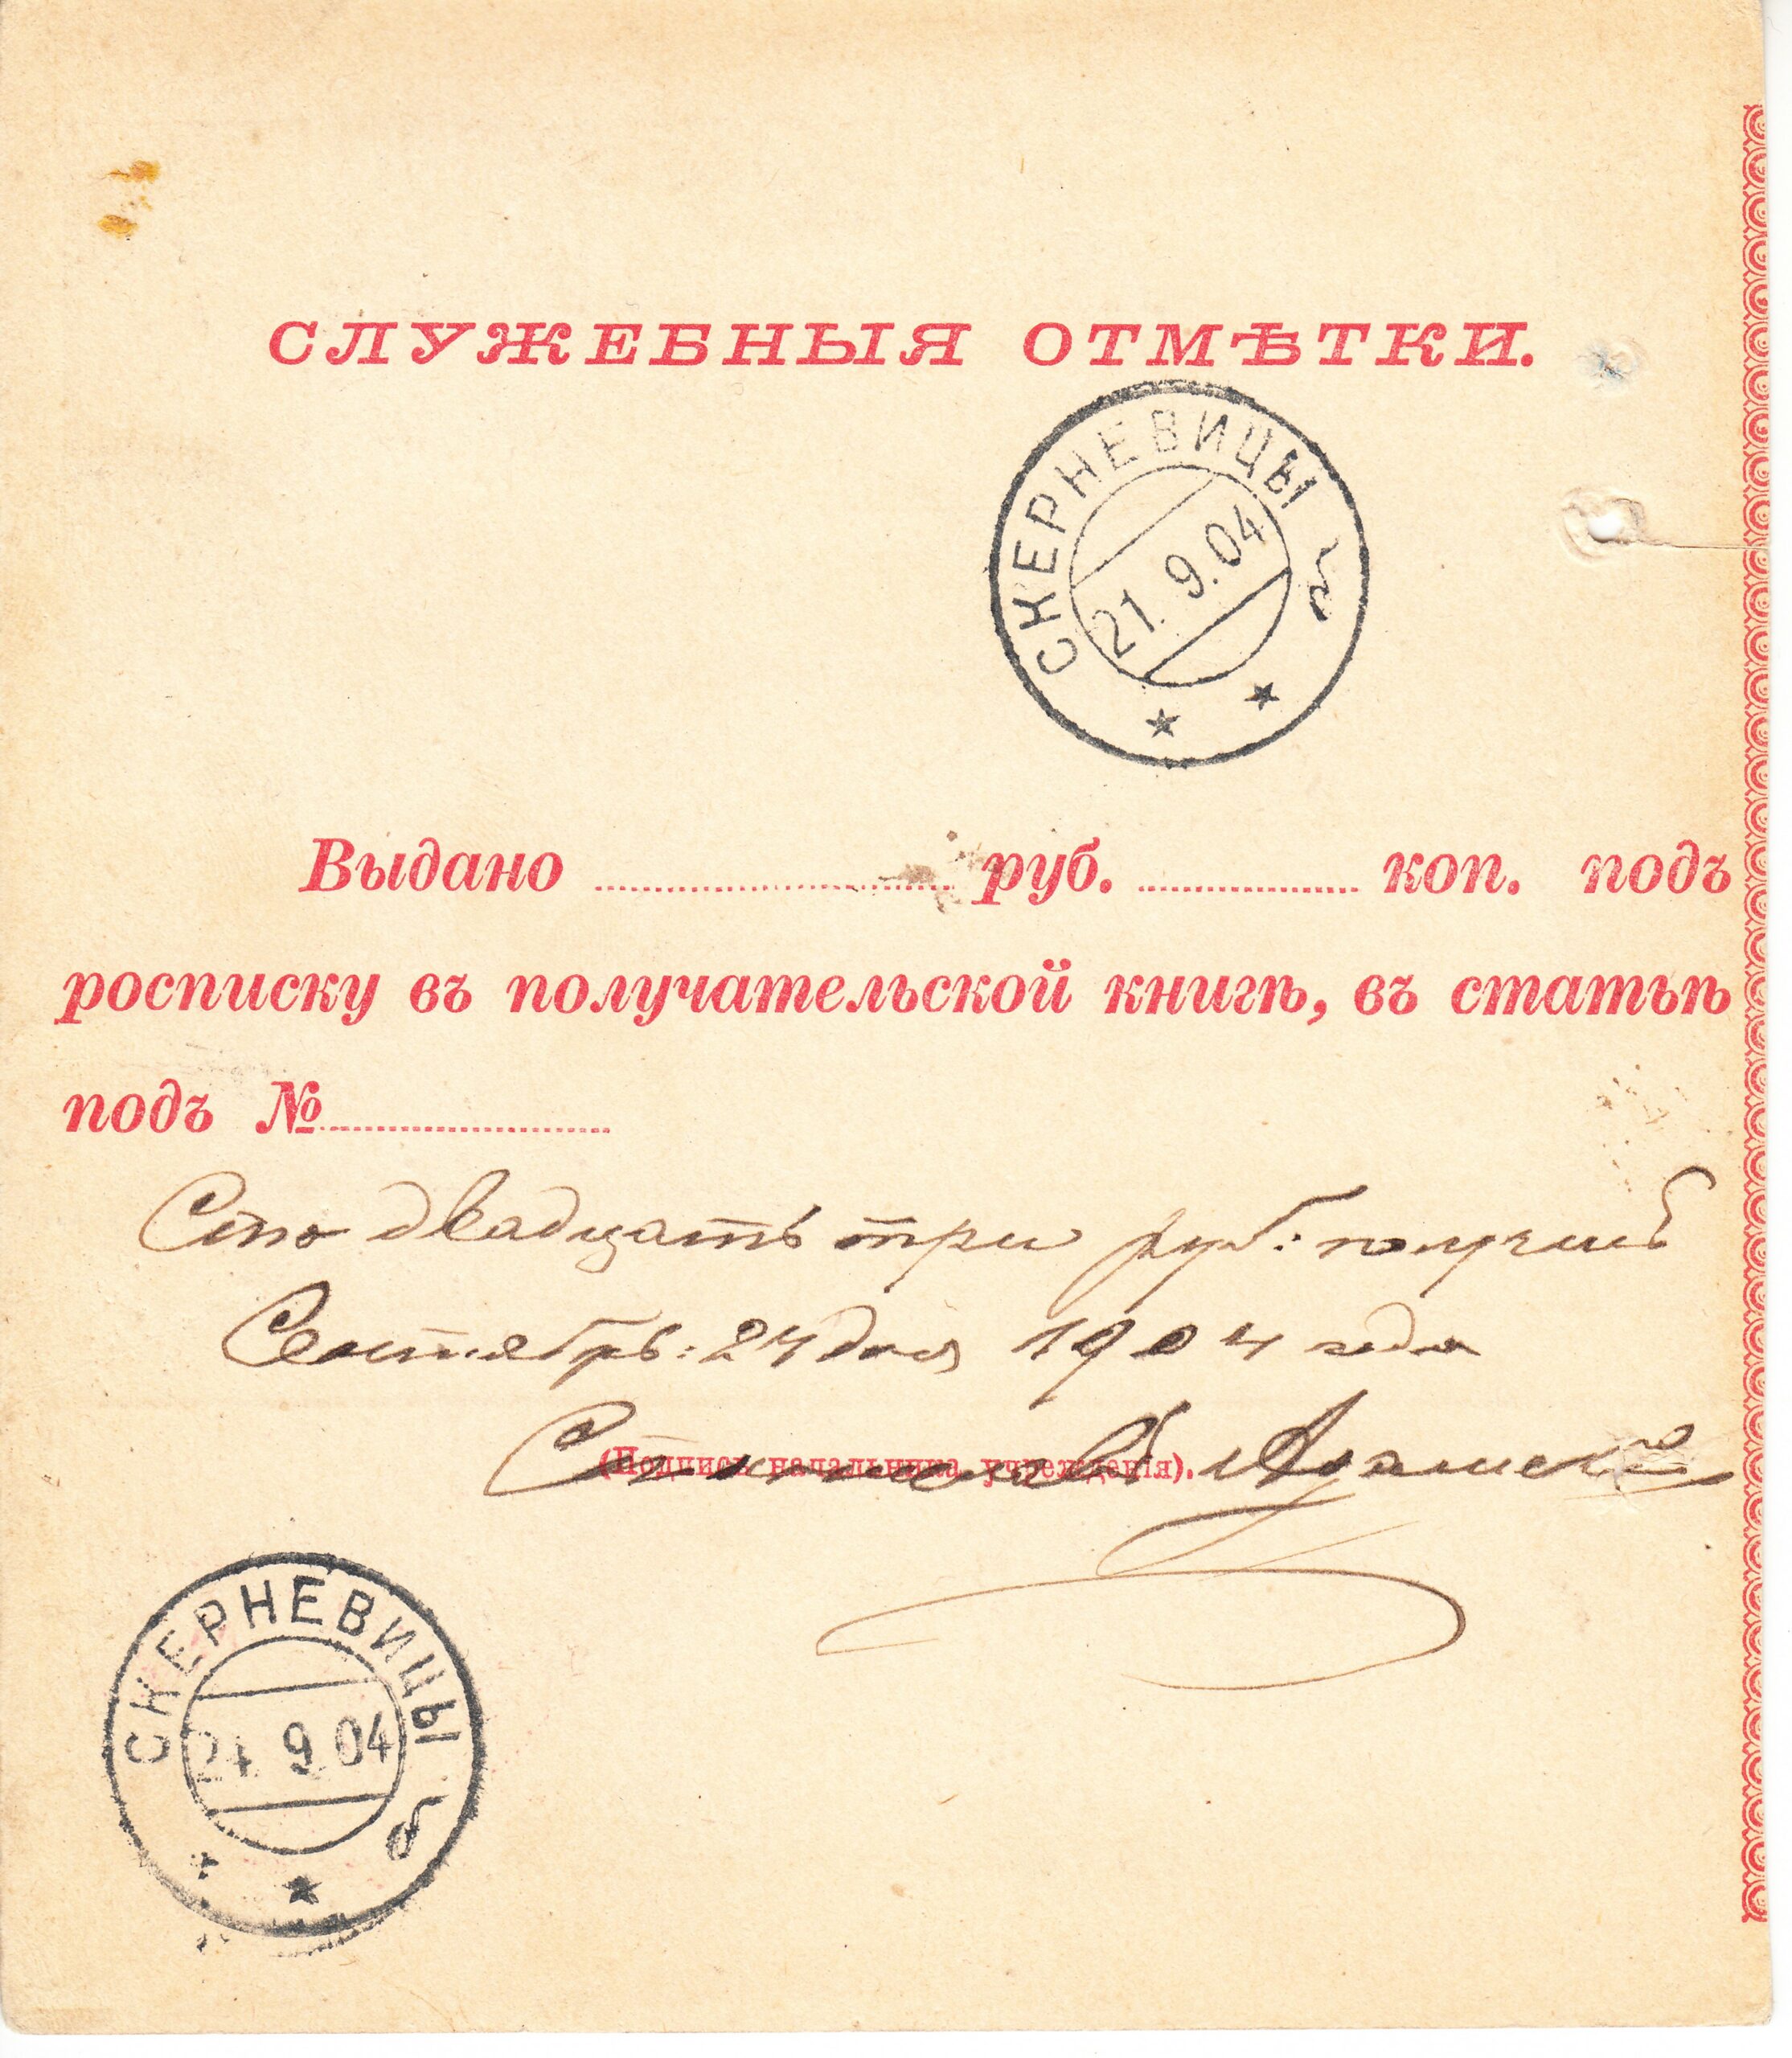 СЛУЖЕБНЫЯ ОТМѢТКИ.
СКЕРНЕВИЦЫ б
21. 9.04
Выдано руб. коп. подъ
росписку въ получательской книгѣ, въ статьѣ
подъ №
Сто двадцать три руб: получилъ
Сентябрь: 24 дня 1904 года
(Подпись начальника учрежденія).
Станиславъ Адамскій
СКЕРНЕВИЦЫ б
24. 9 04